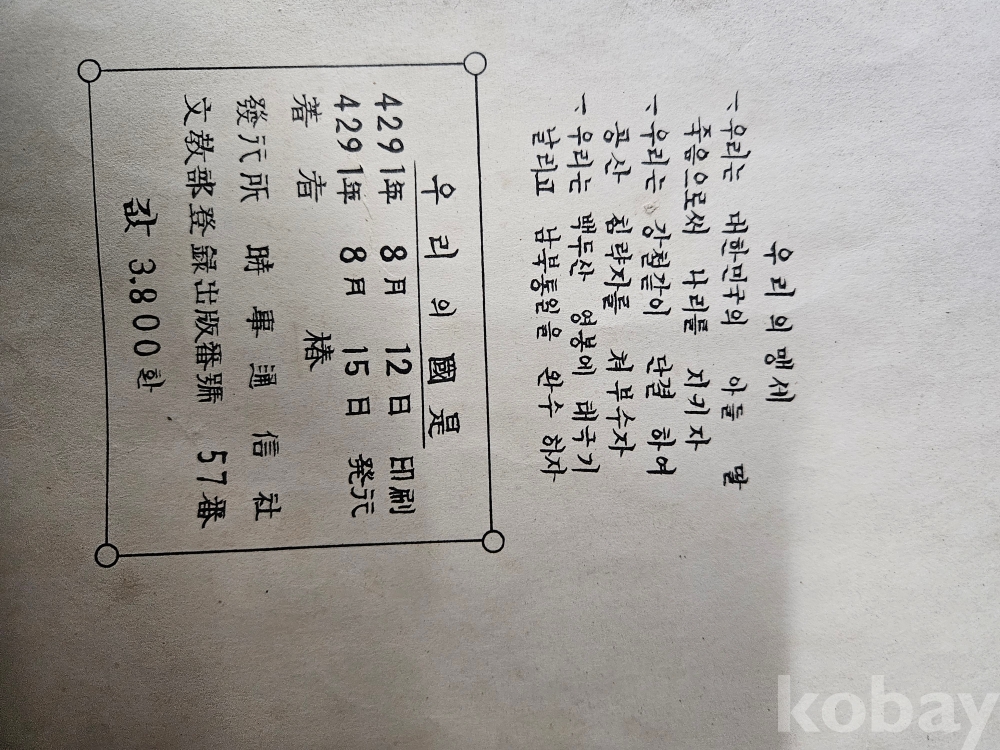 우리의 맹세
一 우리는 대한민국의 아들 딸
죽음으로써 나라를 지키자
一 우리는 강철같이 단결 하여
공산 침략자를 쳐부수자
一 우리는 백두산 영봉에 태극기
날리고 남북통일을 완수 하자
우리의 國是
4291年 8月 12日 印刷
4291年 8月 15日 発元
著者 椿
發元所 時事通信社
文敎部登録出版番號 57番
값 3,800환
kobay